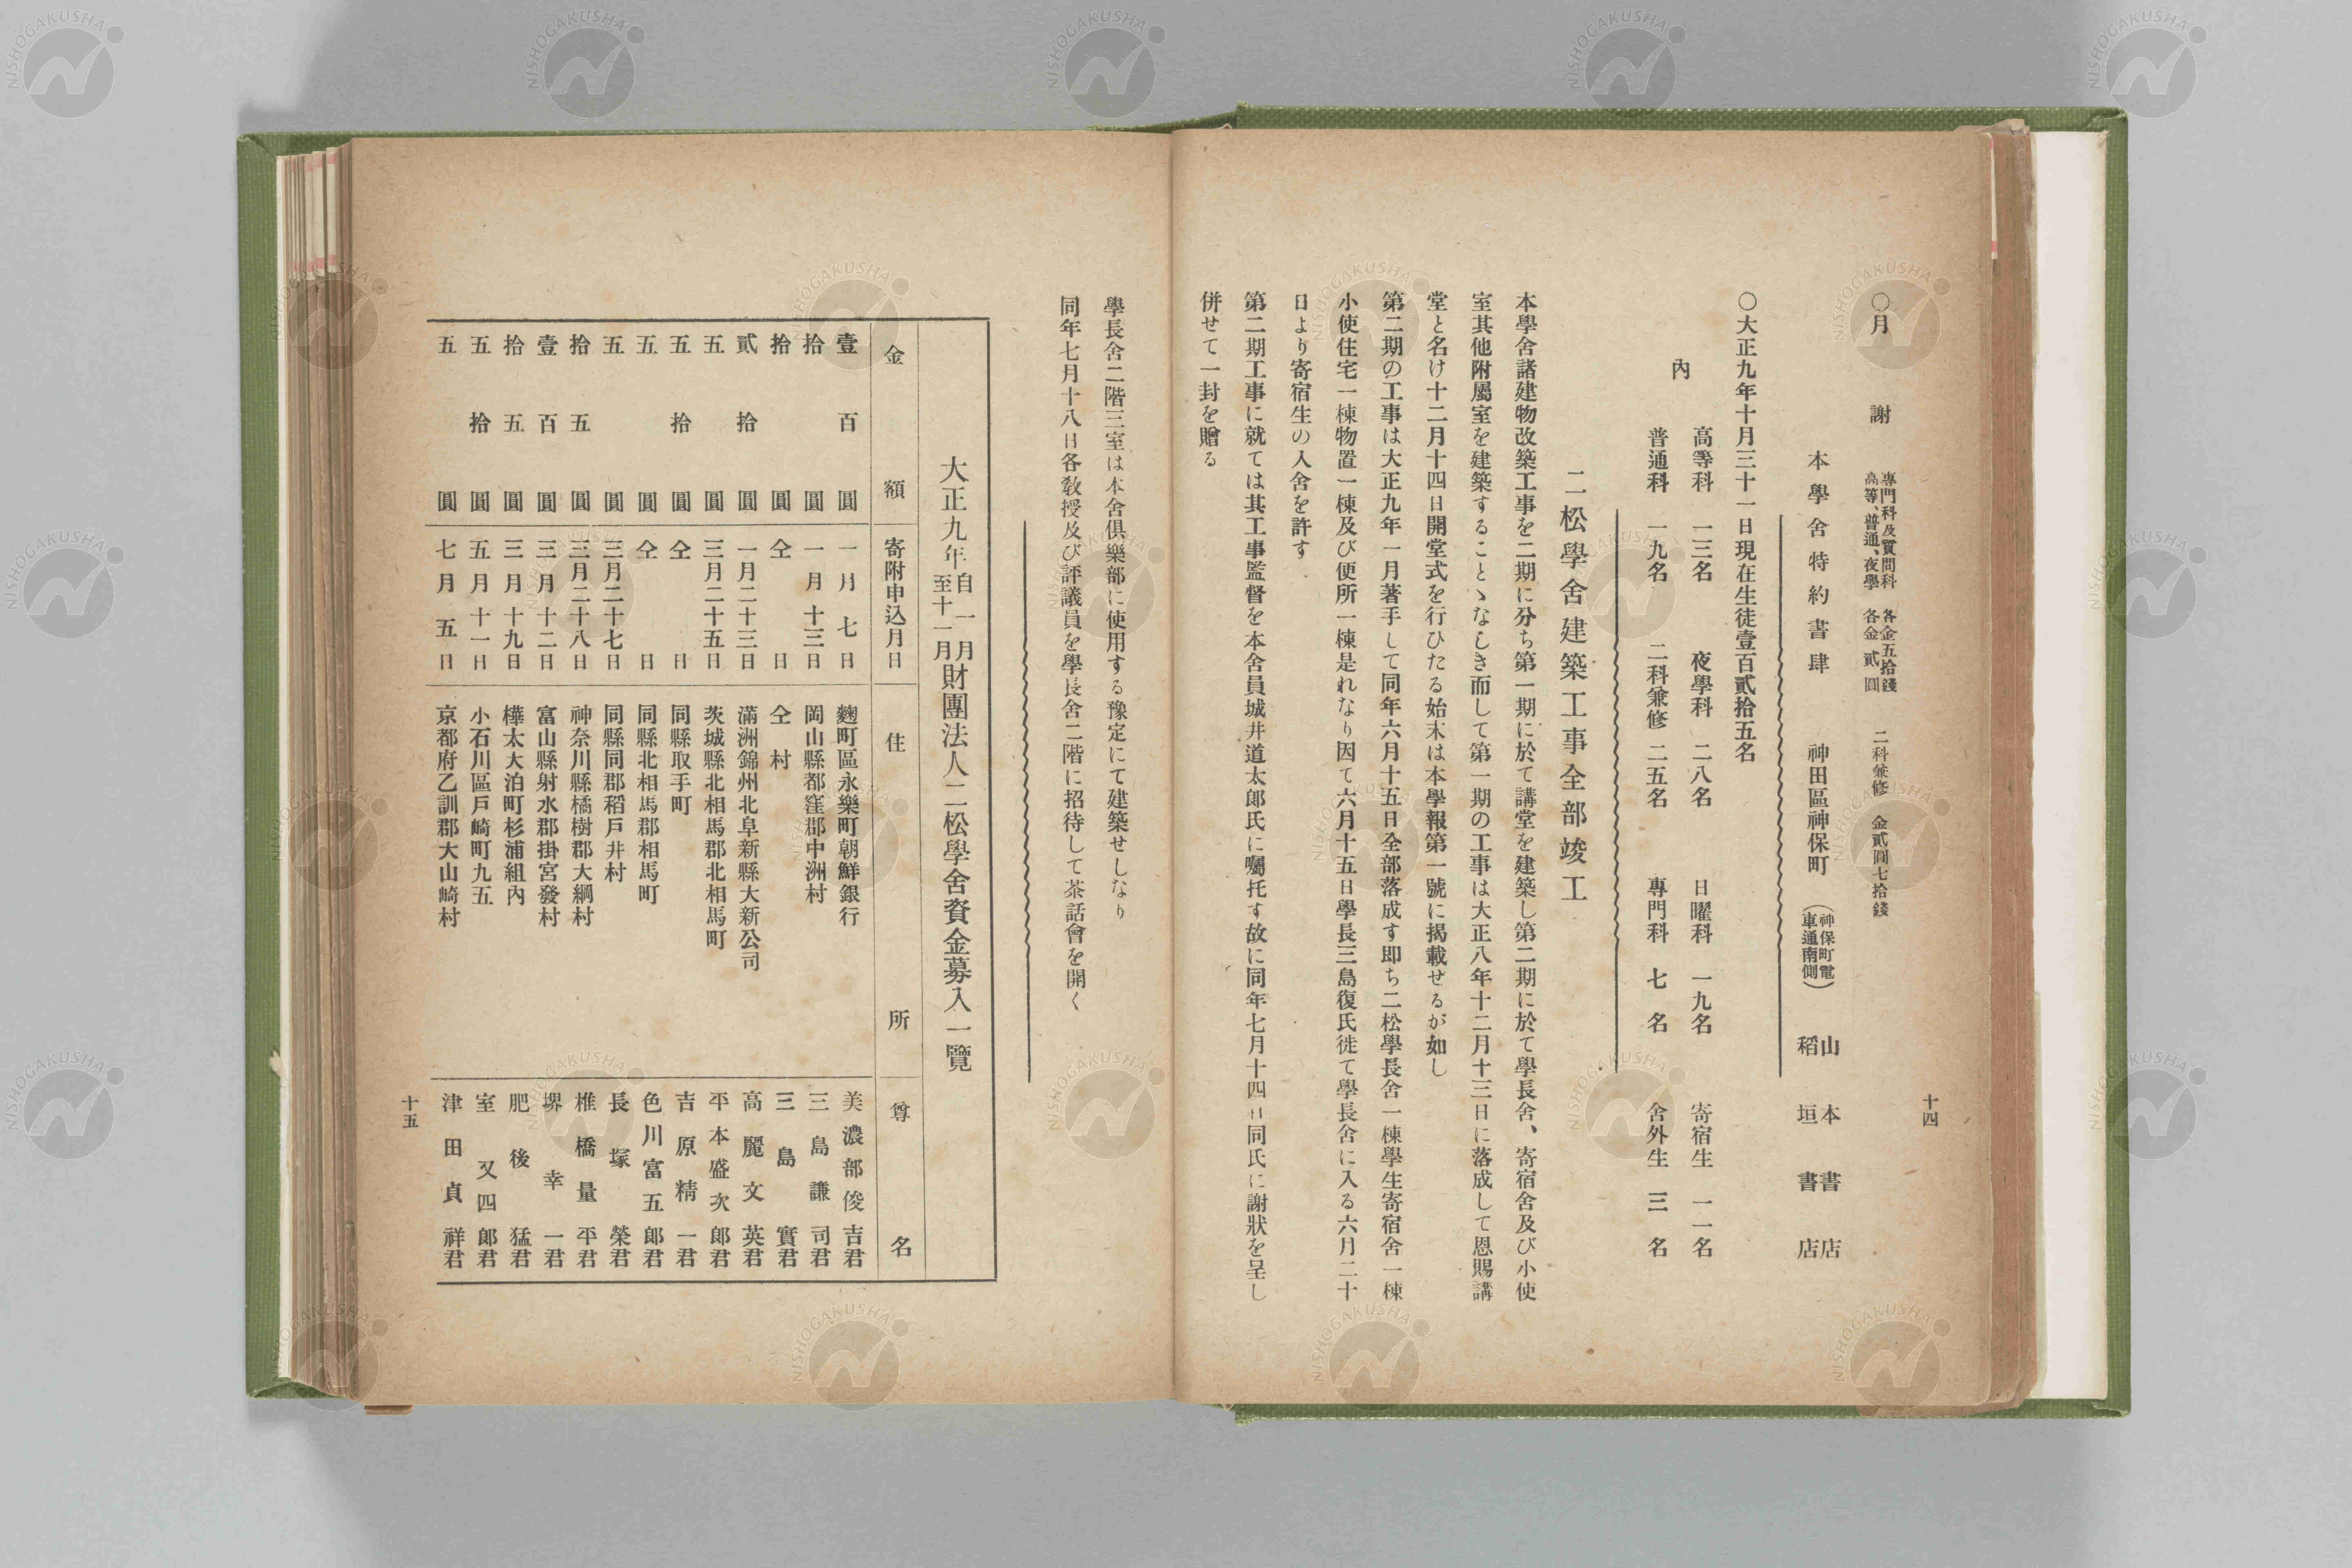 十四
〇月謝 專門科及質問科 各金五拾錢 二科兼修 金貳圓七拾錢
高等、普通、夜學 各金貳圓
本學舍特約書肆 神田區神保町 (神保町電車通南側) 山本書店
稻垣書店
〇大正九年十月三十一日現在生徒壹百貳拾五名
內
高等科 一三名 夜學科 二八名 日曜科 一九名 寄宿生 一一名
普通科 一九名 二科兼修 二五名 專門科 七名 舍外生 三名
二松學舍建築工事全部竣工
本學舍諸建物改築工事を二期に分ち第一期に於て講堂を建築し第二期に於て學長舍、寄宿舍及び小使
室其他附屬室を建築することゝなしき而して第一期の工事は大正八年十二月十三日に落成して恩賜講
堂と名け十二月十四日開堂式を行ひたる始末は本學報第一號に揭載せるが如し
第二期の工事は大正九年一月著手して同年六月十五日全部落成す即ち二松學長舍一棟學生寄宿舍一棟
小使住宅一棟物置一棟及び便所一棟是れなり因て六月十五日學長三島復氏徙て學長舍に入る六月二十
日より寄宿生の入舍を許す
第二期工事に就ては其工事監督を本舍員城井道太郎氏に囑托す故に同年七月十四日同氏に謝狀を呈し
併せて一封を贈る
學長舍二階三室は本舍俱樂部に使用する豫定にて建築せしなり
同年七月十八日各教授及び評議員を學長舍二階に招待して茶話會を開く
大正九年自一月至十一月財團法人二松學舍資金募入一覽
金額 寄附申込月日 住所 尊名
壹百圓 一月七日 麴町區永樂町朝鮮銀行 美濃部俊吉君
拾圓 一月十三日 岡山縣都窪郡中洲村 三島謙司君
拾圓 仝日 仝村 三島實君
貳拾圓 一月二十三日 滿洲錦州北阜新縣大新公司 高麗文英君
五圓 三月二十五日 茨城縣北相馬郡北相馬町 平本盛次郎君
五拾圓 仝日 同縣取手町 吉原精一君
五圓 仝日 同縣北相馬郡相馬町 色川富五郎君
五圓 三月二十七日 同縣同郡稻戶井村 長塚榮君
拾五圓 三月二十八日 神奈川縣橘樹郡大綱村 椎橋量平君
壹百圓 三月十二日 富山縣射水郡掛宮發村 堺幸一君
拾五圓 三月十九日 樺太大泊町杉浦組內 肥後猛君
五拾圓 五月十一日 小石川區戶崎町九五 室又四郎君
五圓 七月五日 京都府乙訓郡大山崎村 津田貞祥君
十五
NISHOGAKUSHA